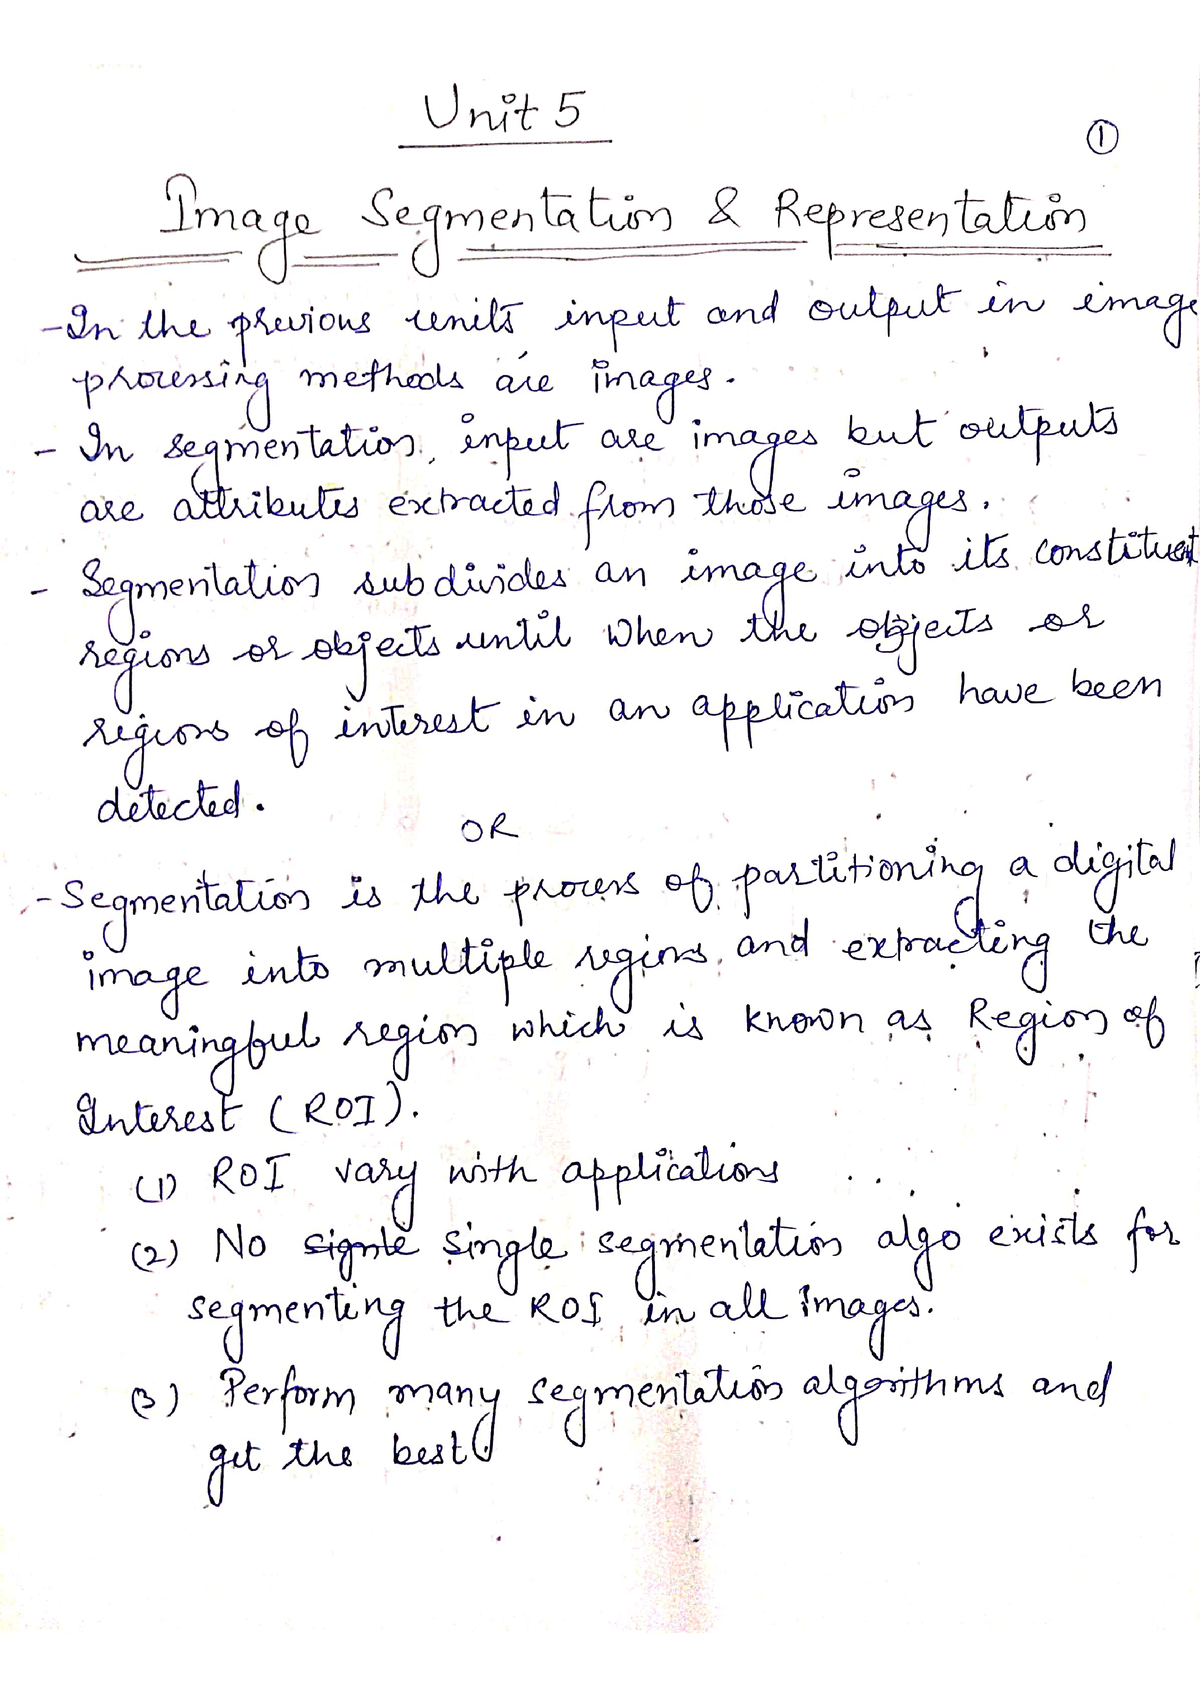 Unit 5
①
Image Segmentation & Representation
- In the previous units input and output in image
processing methods are images.
- In segmentation, input are images but outputs
are attributes extracted from those images.
- Segmentation subdivides an image into its constituent
regions or objects until when the objects or
regions of interest in an application have been
detected.
OR
- Segmentation is the process of partitioning a digital
image into multiple regions, and extracting the
meaningful region which is known as Region of
Interest (ROI).
(1) ROI vary with applications
(2) No signle single segmentation algo exists for
segmenting the ROI in all images.
(3) Perform many segmentation algorithms and
get the best